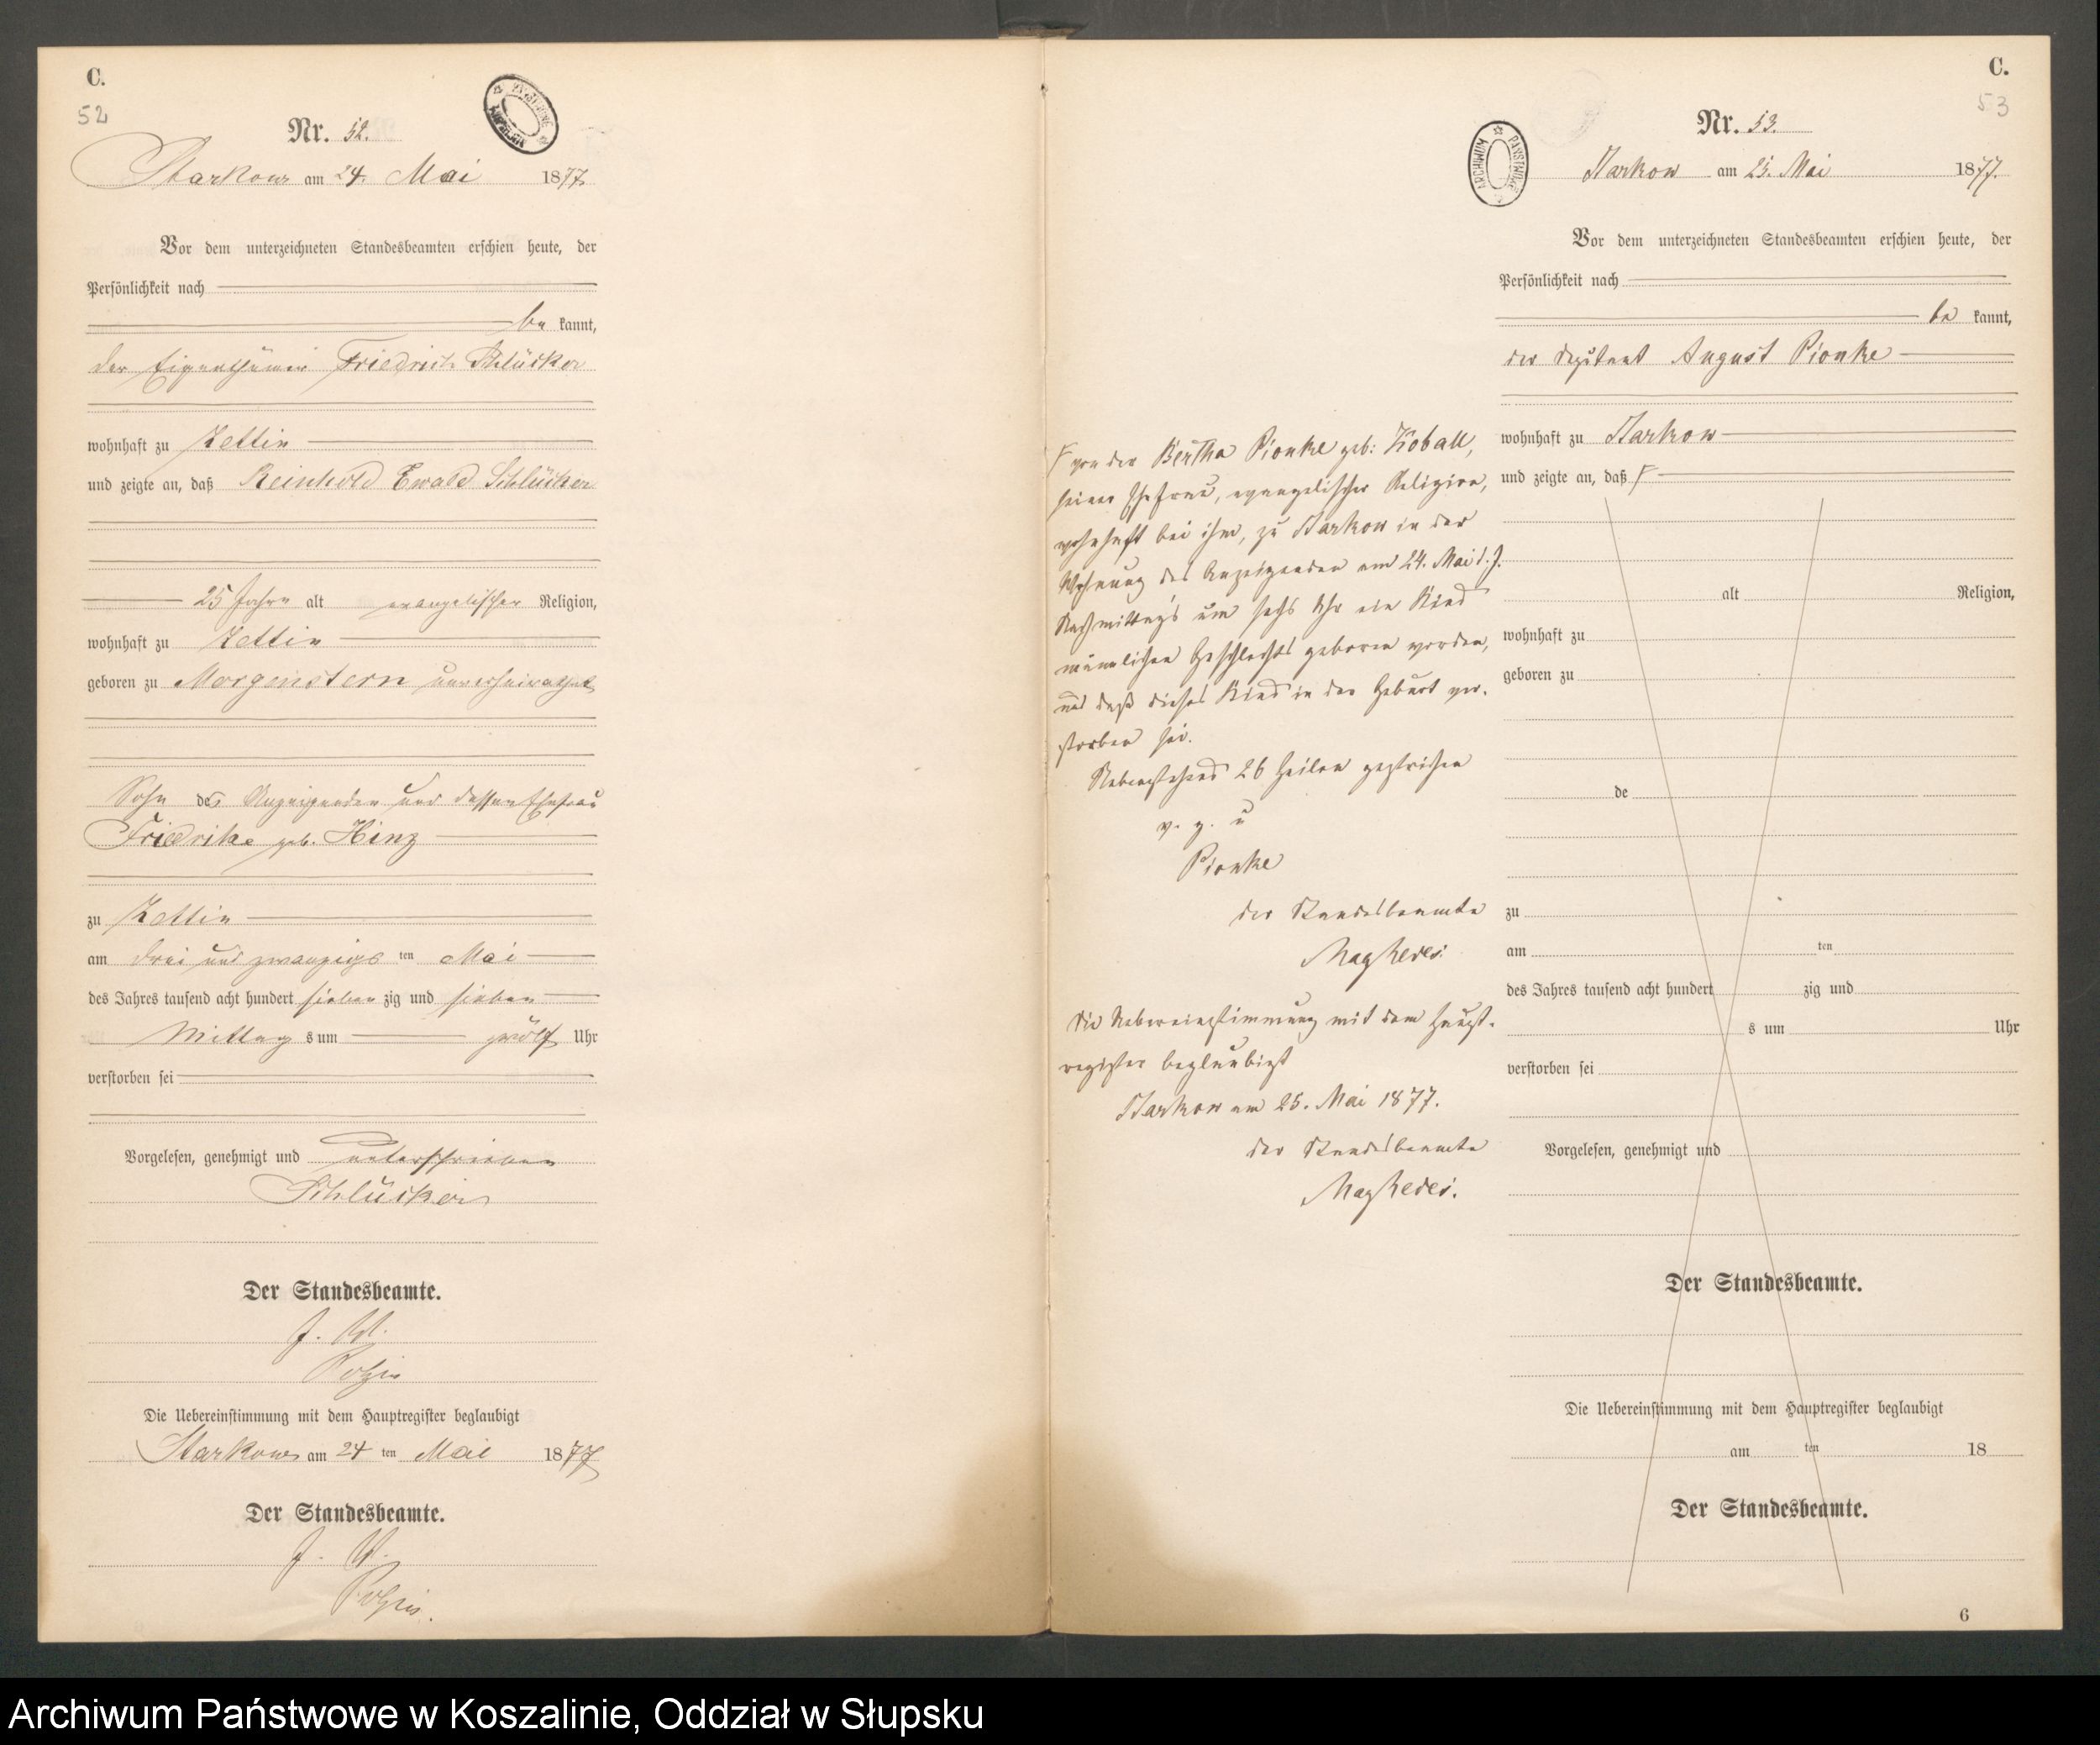 C.
52
Nr. 52.
Starkow am 24. Mai 1877
Vor dem unterzeichneten Standesbeamten erschien heute, der
Persönlichkeit nach
be kannt,
der Eigenthümer Friedrich Schlücker
wohnhaft zu Zettin
und zeigte an, daß Reinhold Ewald Schlücker
25 Jahre alt evangelischer Religion,
wohnhaft zu Zettin
geboren zu Morgenstern unverheirathet
Sohn des Anzeigenden und dessen Ehefrau
Friedrike geb. Hinz
zu Zettin
am drei und zwanzigs ten Mai
des Jahres tausend acht hundert sieben zig und sieben
Mittag s um zwölf Uhr
verstorben sei
Vorgelesen, genehmigt und unterschrieben
Schlücker
Der Standesbeamte.
Die Uebereinstimmung mit dem Hauptregister beglaubigt
Starkow am 24 ten Mai 1877
Der Standesbeamte.
C.
53
Nr. 53.
ARCHIWUM PAŃSTWOWE
Starkow am 25. Mai 1877.
Vor dem unterzeichneten Standesbeamten erschien heute, der
Persönlichkeit nach
be kannt,
der Deputant August Pionke
wohnhaft zu Starkow
und zeigte an, daß
von der Bertha Pionke geb: Koball,
seiner Ehefrau, evangelischer Religion,
wohnhaft bei ihm, zu Starkow in der
Wohnung des Anzeigenden am 24. Mai d. J.
Nachmittags um sechs Uhr ein Kind
männlichen Geschlechts geboren worden,
und daß dieses Kind in der Geburt ver-
storben sei.
Nebenstehend 26 Zeilen gestrichen
v. g. u
Pionke
der Standesbeamte
die Uebereinstimmung mit dem Haupt-
register beglaubigt
Starkow am 25. Mai 1877.
der Standesbeamte
alt Religion,
wohnhaft zu
geboren zu
de
zu
am ten
des Jahres tausend acht hundert zig und
s um Uhr
verstorben sei
Vorgelesen, genehmigt und
Der Standesbeamte.
Die Uebereinstimmung mit dem Hauptregister beglaubigt
am ten 18
Der Standesbeamte.
6
Archiwum Państwowe w Koszalinie, Oddział w Słupsku